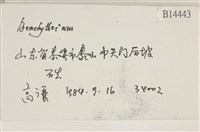 B14443
Brachytherium
山东省泰安市泰山中天门后坡
石头
高谦 1984.9.16 34002